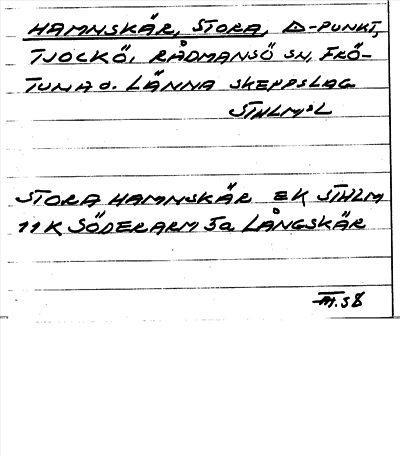 HAMNSKÄR, STORA, Δ-PUNKT,
TJOCKÖ, RÅDMANSÖ SN, FRÖ-
TUNA O. LÄNNA SKEPPSLAG
STHLMSL
STORA HAMNSKÄR EK STHLM
11K SÖDERARM 5a LÅNGSKÄR
III.58